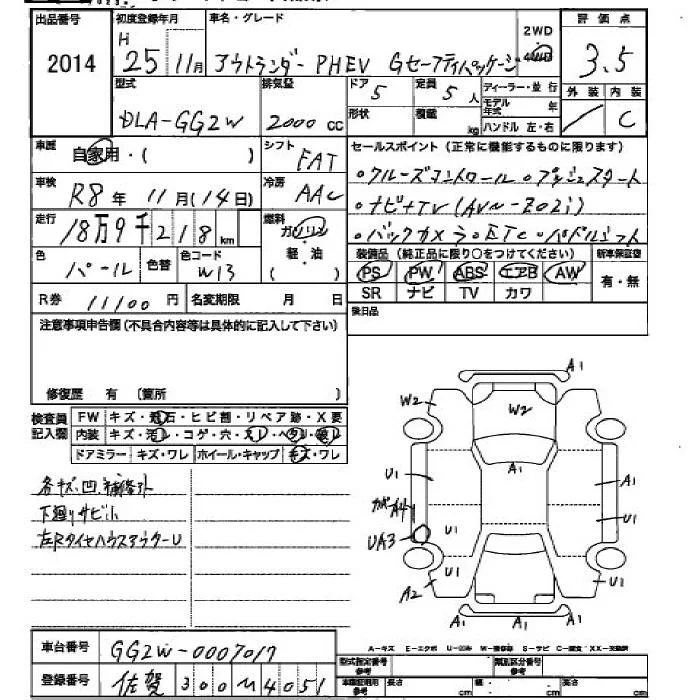 出品番号 初度登録年月 車名・グレード 2WD 評価点
2014 H 25 11月 アウトランダー PHEV Gセーフティパッケージ 4WD 3.5
型式 排気量 ドア 5 定員 5人 ディーラー・並行 外装 内装
DLA-GG2W 2000 cc 形状 積載 kg モデル年式 年 ハンドル 左・右 C
車歴 自家用・( ) シフト FAT セールスポイント(正常に機能するものに限ります)
車検 R8年 11月(14日) 冷房 AAC ○クルーズコントロール○プッシュスタート
○ナビ+TV(AVN-Z02i)
走行 18万9千218km 燃料 ガソリン・軽油 ( ) ○バックカメラ○ETC○パドルシフト
色 パール 色替 色コード W13 装備品(純正品に限り○をつけてください) 新車保証書
PS PW ABS エアB AW 有・無
R券 11100円 名変期限 月 日 SR ナビ TV カワ
注意事項申告欄(不具合内容等は具体的に記入して下さい) 後日品
修復歴 有(箇所 )
検査員記入欄 FW キズ・飛石・ヒビ割・リペア跡・X要
内装 キズ・汚レ・コゲ・穴・スレ・ヘタリ・破レ
ドアミラー キズ・ワレ ホイール・キャップ キズ・ワレ
各キズ、凹、補修外
下廻りサビ小
左RタイヤハウスアウターU
A1
W2 W2
A1
U1 A1
A4
U1 U1
UA3
U1 U1
A2
A1
A-キズ E-エクボ U-凹み W-補修跡 S-サビ C-腐食 XX-交換済
車台番号 GG2W-0007017
登録番号 佐賀 300 M 4051
型式指定番号 参考 類別区分番号 参考
車庫証明用 参考 長さ cm 幅 cm 高さ cm